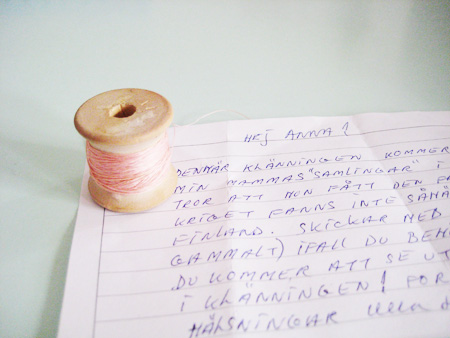 HEJ ANNA!
DENHÄR KLÄNNINGEN KOMMER
MIN MAMMAS "SAMLINGAR" I
TROR ATT HON FÅTT DEN
KRIGET FANNS INTE SÅHÄ
FINLAND. SKICKAR MED
GAMMALT) IFALL DU BEH
DU KOMMER ATT SE UT
I KLÄNNINGEN! FÖR
HÄLSNINGAR